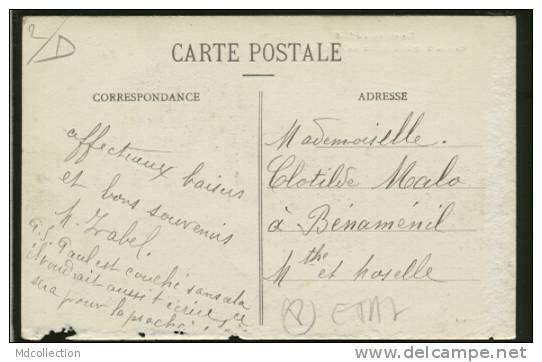 2/D
CARTE POSTALE
CORRESPONDANCE
ADRESSE
affectueux baisers
et bons souvenirs
M. Izabel.
P.S. Paul est couché sans cela
il voudrait aussi t'écrire ce
sera pour la proche
Mademoiselle.
Clotilde Malo
à Bénaménil
Mthe et Moselle
ETAT
MDcollection
http://mdcollection.delcampe.net